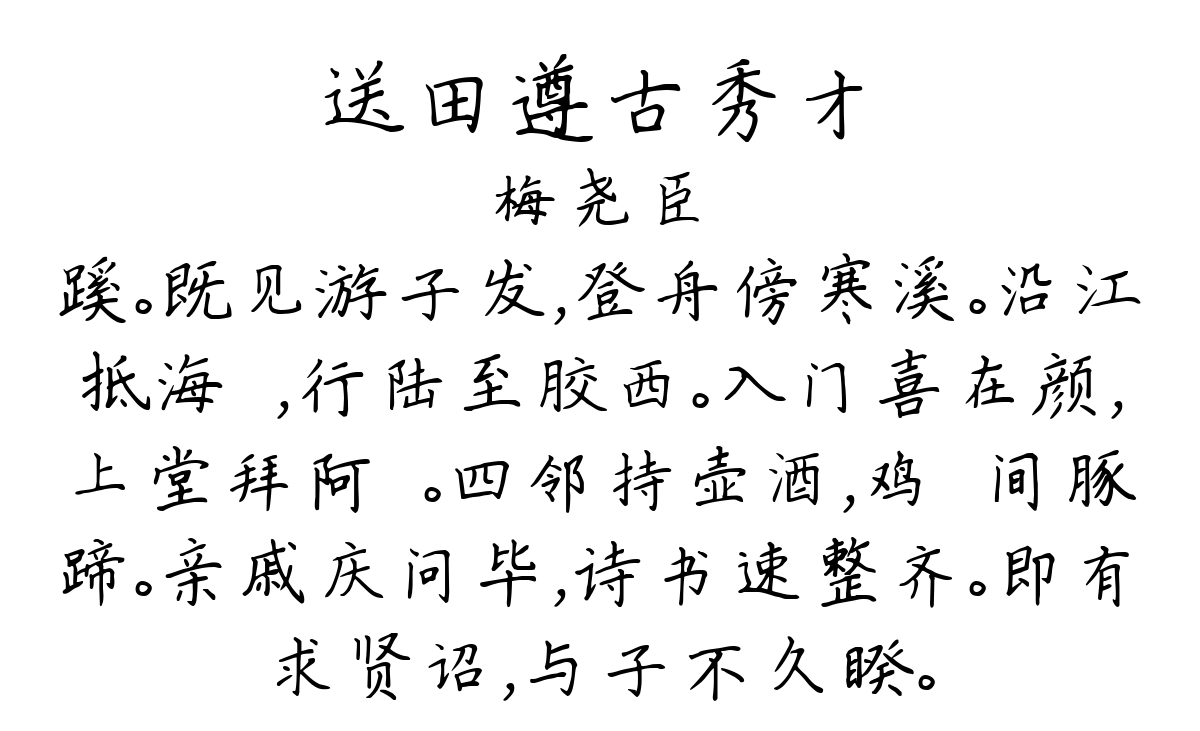 送田遵古秀才
梅尧臣
蹊。既见游子发,登舟傍寒溪。沿江
抵海 ,行陆至胶西。入门喜在颜,
上堂拜阿 。四邻持壶酒,鸡 间豚
蹄。亲戚庆问毕,诗书速整齐。即有
求贤诏,与子不久睽。